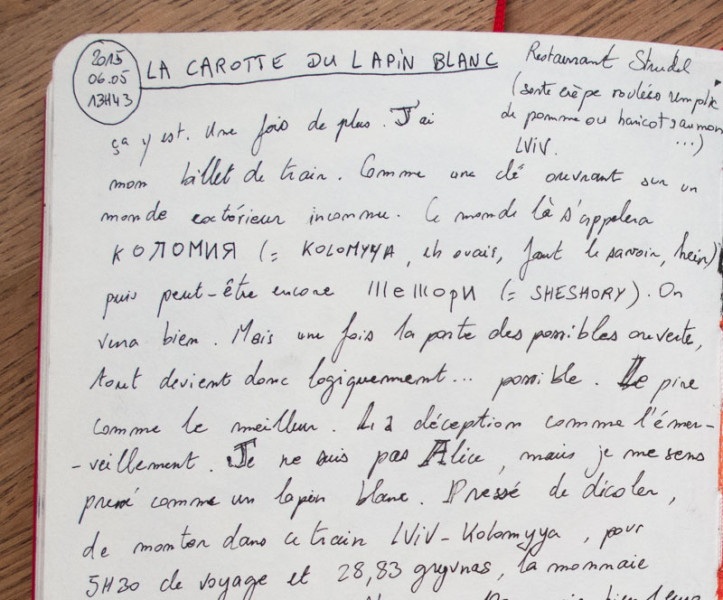 2015
06.05
13H43
LA CAROTTE DU LAPIN BLANC
Restaurant Strudel
(sorte crêpe roulées remplie
de pomme ou haricots saumon
...)
LViV.
ça y est. Une fois de plus. J'ai
mon billet de train. Comme une clé ouvrant sur un
monde extérieur inconnu. Ce monde là s'appelera
КОЛОМИЯ (= KOLOMYYA, eh ouais, faut le savoir, hein)
puis peut-être encore Шешори (= SHESHORY). On
verra bien. Mais une fois la porte des possibles ouverte,
tout devient donc logiquement... possible. Le pire
comme le meilleur. La déception comme l'émer-
-veillement. Je ne suis pas Alice, mais je me sens
pressé comme un lapin blanc. Pressé de décoler,
de monter dans ce train LViV-Kolomyya, pour
5H30 de voyage et 28,83 gryvnas, la monnaie
bien